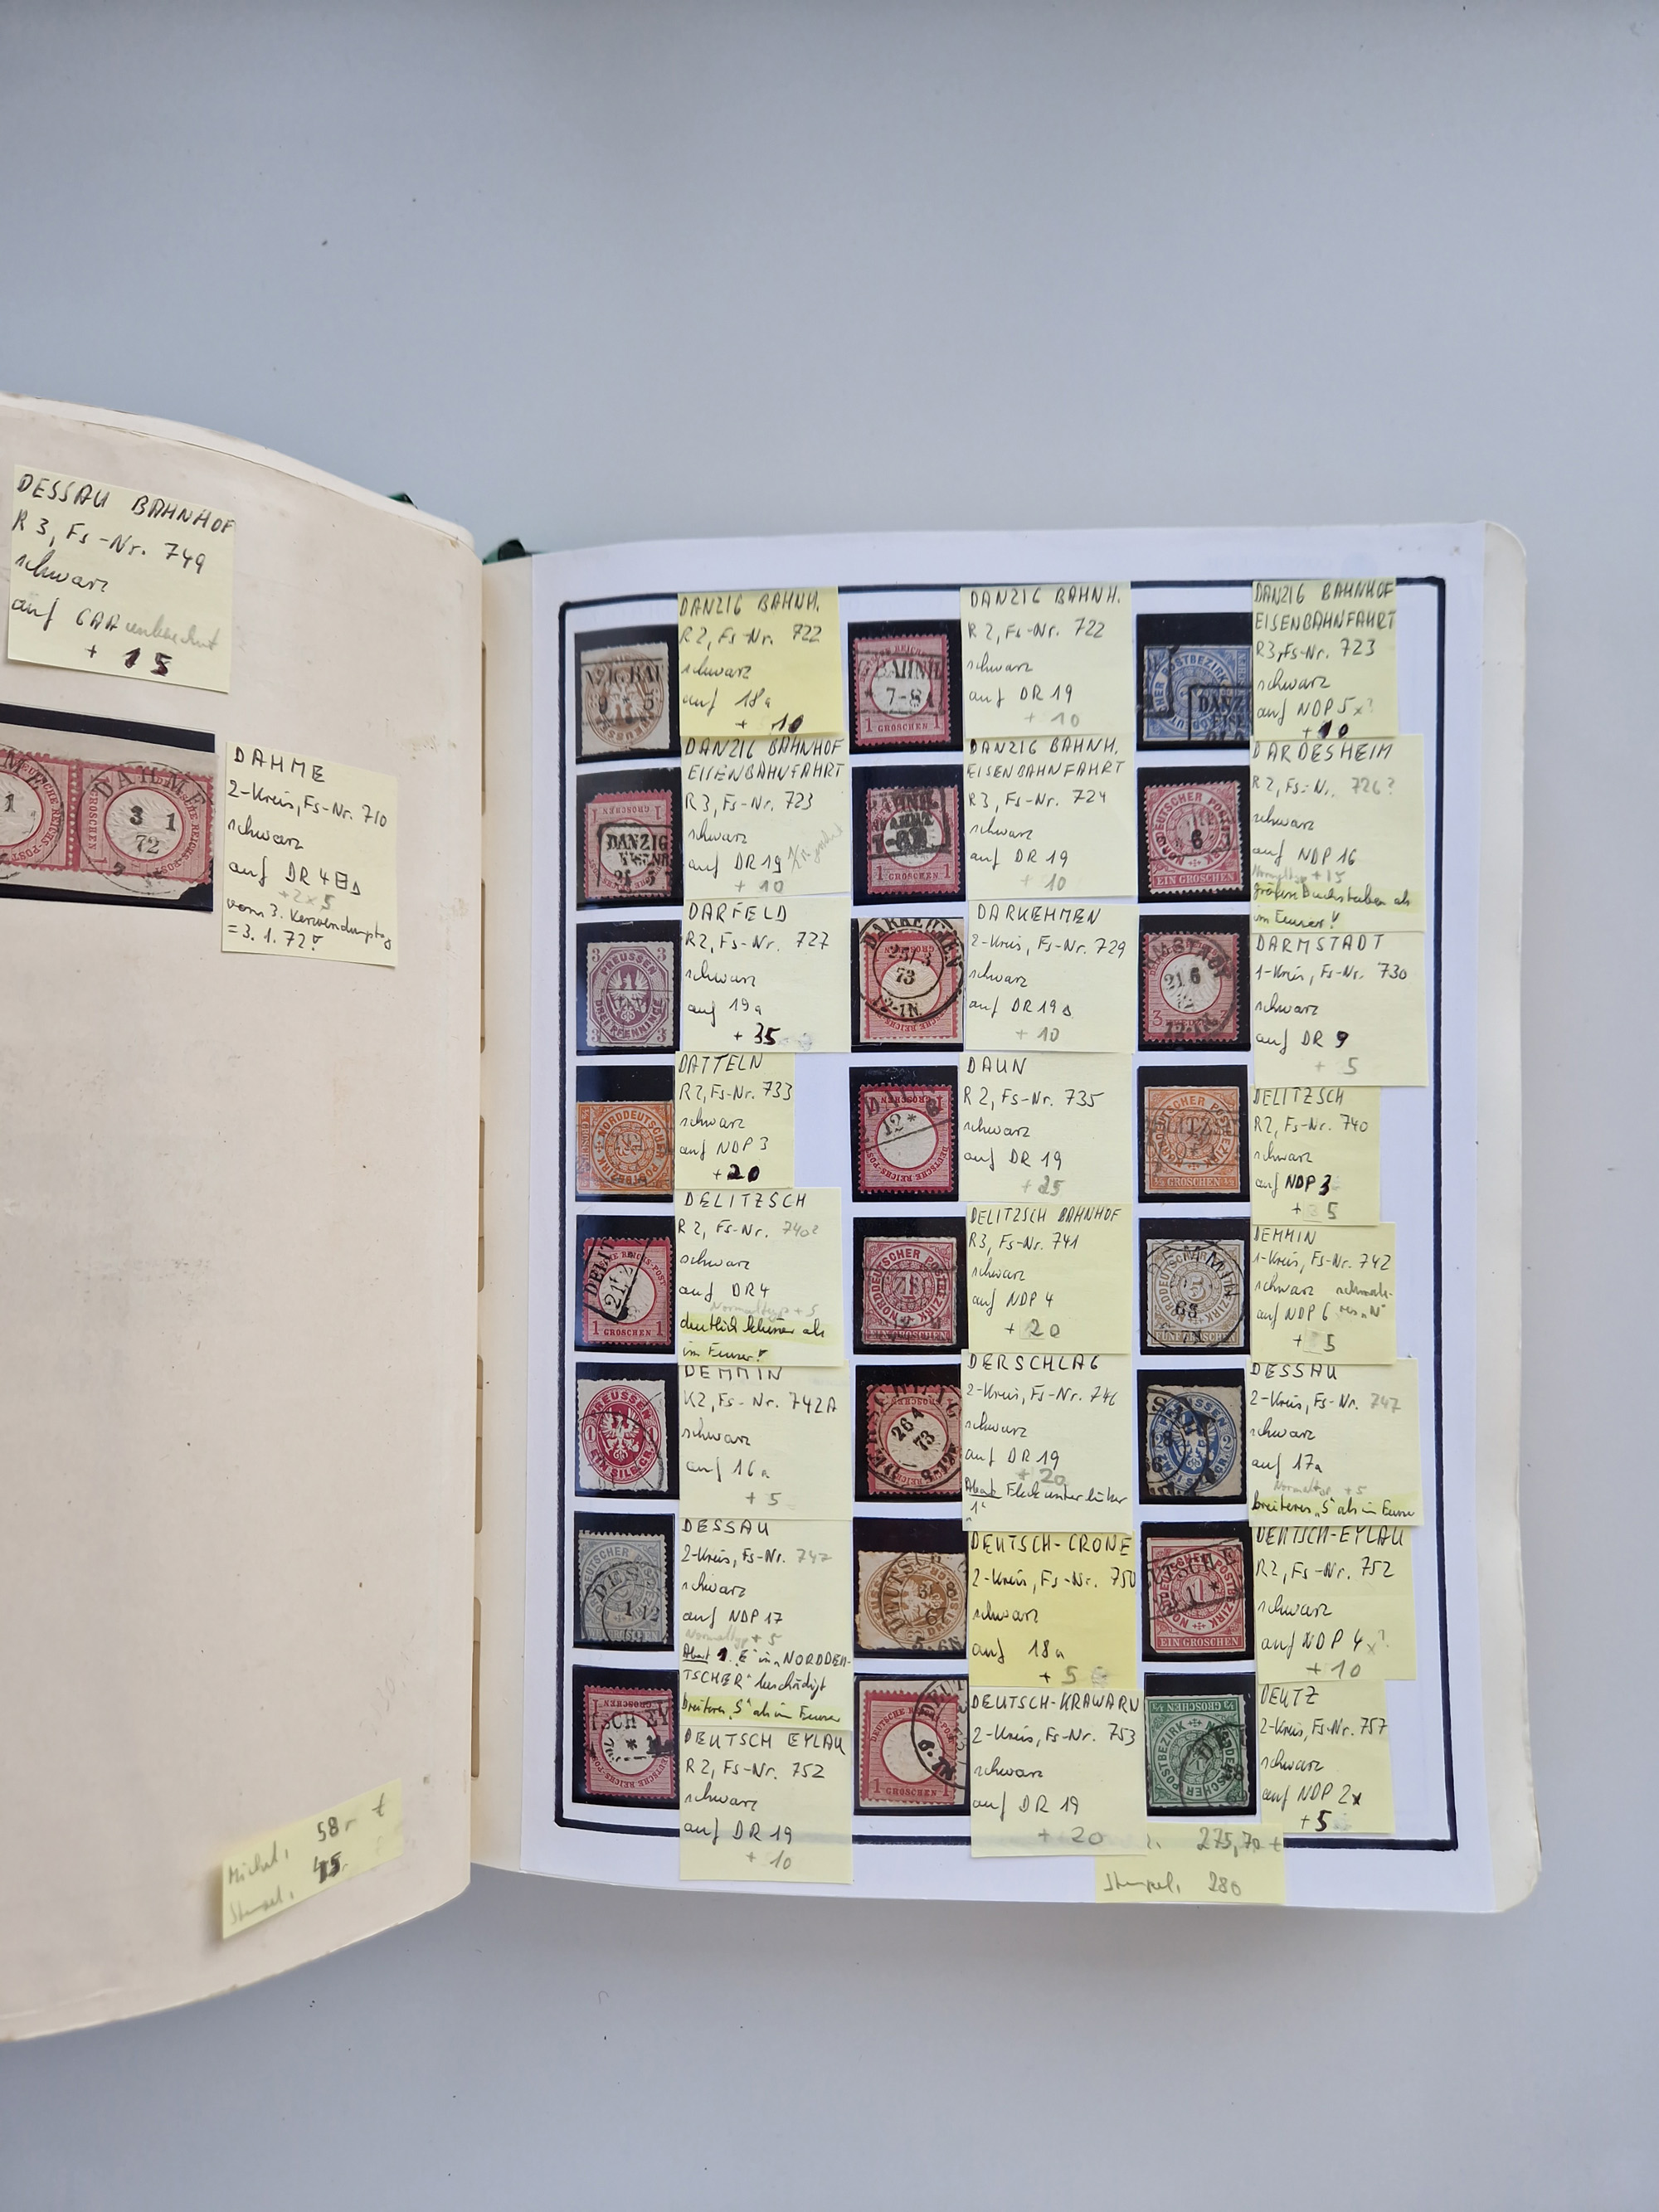 DESSAU BAHNHOF
R 3, Fs-Nr. 749
schwarz
auf GAA
+ 15
DAHME
3 1
72
DAHME
2-Kreis, Fs-Nr. 710
schwarz
auf DR 4
+2x5
vom 3. Verwendungstag
= 3. 1. 72!
Michel, 58,- €
Stempel, 45,-
DANZIG BAHNH.
R 2, Fs-Nr. 722
schwarz
auf 18a
+ 10
DANZIG BAHNH.
R 2, Fs-Nr. 722
schwarz
auf DR 19
+ 10
DANZIG BAHNHOF
EISENBAHNFAHRT
R3, Fs-Nr. 723
schwarz
auf NDP 5x?
+ 10
DANZIG BAHNHOF
EISENBAHNFAHRT
R 3, Fs-Nr. 723
schwarz
auf DR 19
+ 10
DANZIG BAHNH.
EISENBAHNFAHRT
R 3, Fs-Nr. 724
schwarz
auf DR 19
+ 10
DARDESHEIM
R 2, Fs-Nr. 726?
schwarz
auf NDP 16
Normaltyp + 15
größere Buchstaben als
im Feuser!
DARFELD
R 2, Fs-Nr. 727
schwarz
auf 19a
+ 35
DARKEHMEN
2-Kreis, Fs-Nr. 729
schwarz
auf DR 19
+ 10
DARMSTADT
1-Kreis, Fs-Nr. 730
schwarz
auf DR 9
+ 5
DATTELN
R 2, Fs-Nr. 733
schwarz
auf NDP 3
+ 20
DAUN
R 2, Fs-Nr. 735
schwarz
auf DR 19
+ 25
DELITZSCH
R2, Fs-Nr. 740
schwarz
auf NDP 3
+ 5
DELITZSCH
R 2, Fs-Nr. 740?
schwarz
auf DR 4
Normaltyp + 5
deutlich kleiner als
im Feuser!
DELITZSCH BAHNHOF
R3, Fs-Nr. 741
schwarz
auf NDP 4
+ 20
DEMMIN
1-Kreis, Fs-Nr. 742
schwarz
auf NDP 6
+ 5
DEMMIN
K2, Fs-Nr. 742A
schwarz
auf 16a
+ 5
DERSCHLAG
2-Kreis, Fs-Nr. 746
schwarz
auf DR 19
+ 20
Abart Fleck unter linker
1"
DESSAU
2-Kreis, Fs-Nr. 747
schwarz
auf 17a
Normaltyp + 5
breiteres "S" als im Feuser
DESSAU
2-Kreis, Fs-Nr. 747
schwarz
auf NDP 17
Normaltyp + 5
Abart 1. "E" in "NORDDEU-
TSCHER" beschädigt
breiteres "S" als im Feuser
DEUTSCH-CRONE
2-Kreis, Fs-Nr. 750
schwarz
auf 18a
+ 5
DEUTSCH-EYLAU
R2, Fs-Nr. 752
schwarz
auf NDP 4x?
+ 10
DEUTSCH EYLAU
R 2, Fs-Nr. 752
schwarz
auf DR 19
+ 10
DEUTSCH-KRAWARN
2-Kreis, Fs-Nr. 753
schwarz
auf DR 19
+ 20
DEUTZ
2-Kreis, Fs-Nr. 757
schwarz
auf NDP 2x
+ 5
275,70 €
Stempel, 280